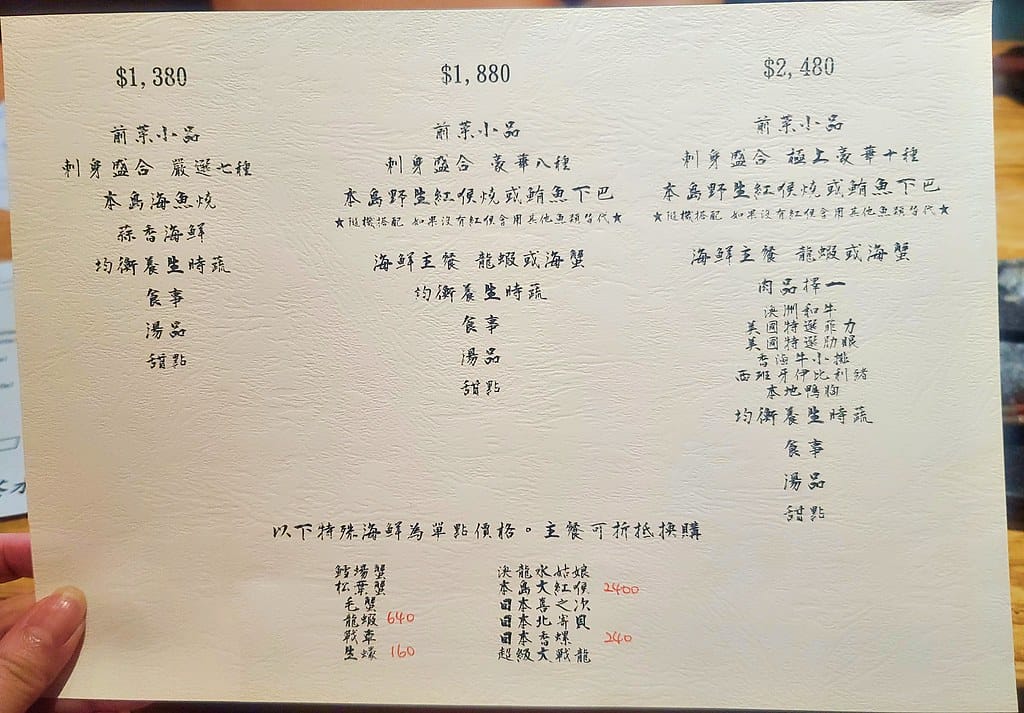 $1,380
前菜小品
刺身盛合 嚴選七種
本島海魚燒
蒜香海鮮
均衡養生時蔬
食事
湯品
甜點
$1,880
前菜小品
刺身盛合 豪華八種
本島野生紅喉燒或鮪魚下巴
★隨機搭配 如果沒有紅喉會用其他魚類替代★
海鮮主餐 龍蝦或海蟹
均衡養生時蔬
食事
湯品
甜點
$2,480
前菜小品
刺身盛合 極上豪華十種
本島野生紅喉燒或鮪魚下巴
★隨機搭配 如果沒有紅喉會用其他魚類替代★
海鮮主餐 龍蝦或海蟹
肉品擇一
澳洲和牛
美國特選菲力
美國特選肋眼
香煎牛小排
西班牙伊比利豬
本地鴨胸
均衡養生時蔬
食事
湯品
甜點
以下特殊海鮮為單點價格。主餐可折抵換購
鱈場蟹
松葉蟹
毛蟹
龍蝦 640
戰車
生蠔 160
澳龍水姑娘
本島大紅喉 2400
日本喜之次
日本北寄貝
日本香螺 240
超級大戰龍